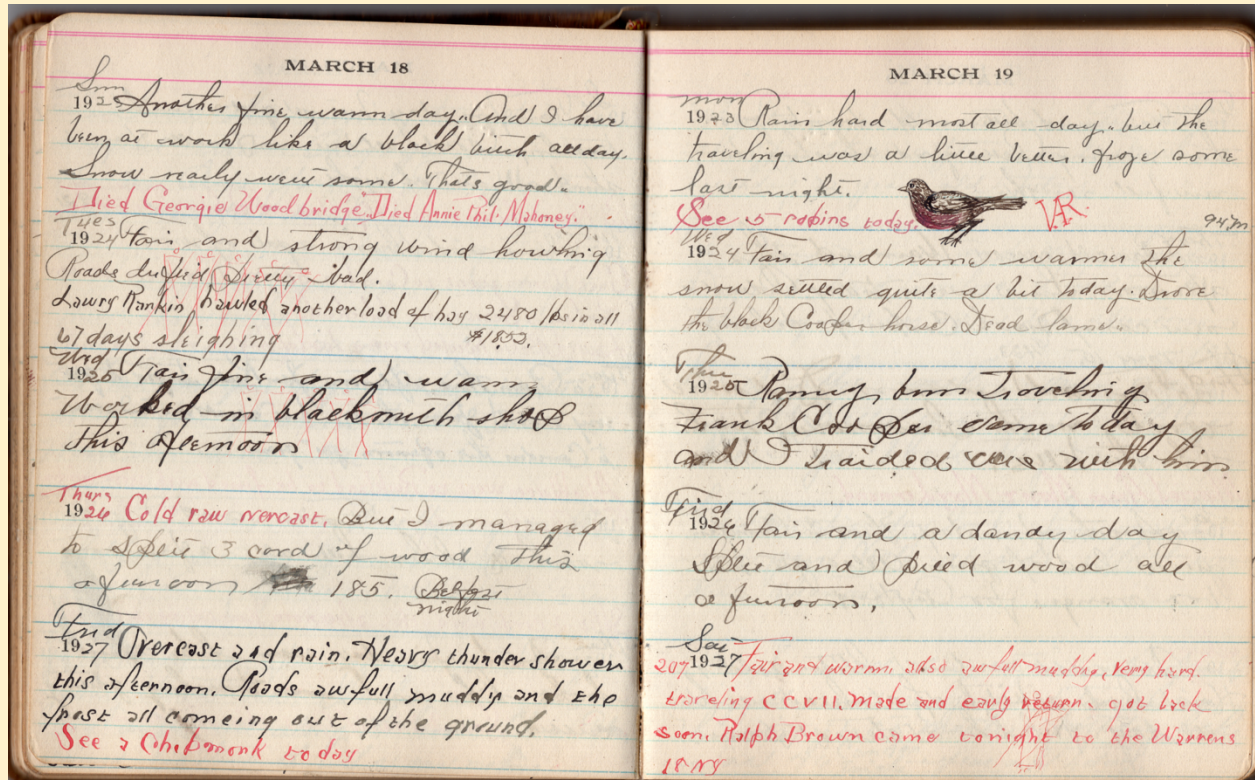 MARCH 18
Sun
1923 Another fine warm day. And I have
been at work like a black bitch all day.
Snow really went some. Thats good.
Died Georgie Woodbridge. "Died Annie Phil. Mahoney."
Tues
1924 Fair and strong wind howling
Roads drifted pretty bad.
Lawry Rankin hawled another load of hay 2480 lbs in all
67 days sleighing $18.52.
Wed
1925 Fair fine and warm
Worked in blacksmith shop
this afternoon
Thurs
1926 Cold raw overcast. But I managed
to split 3 cord of wood this
afternoon 185. Belfast
night
Frid
1927 Overcast and rain. Heavy thunder shower
this afternoon. Roads awfull muddy and the
frost all comeing out of the ground.
See a Chipmonk today
MARCH 19
Mon
1923 Rain hard most all day. but the
traveling was a little better. froze some
last night.
See 5 robins today. V.R.
Wed
1924 Fair and some warmer the
snow settled quite a bit today. Drove
the black Cooper horse. Dead lame.
Thu
1925 Rainey, bum traveling
Frank Cooper came today
and I traided with him
Frid
1926 Fair and a dandy day
Split and piled wood all
afternoon.
Sat
207 1927 Fair and warm. also awfull muddy, very hard.
traveling CCVII. made and early return. got back
soon. Ralph Brown came tonight to the Warrens